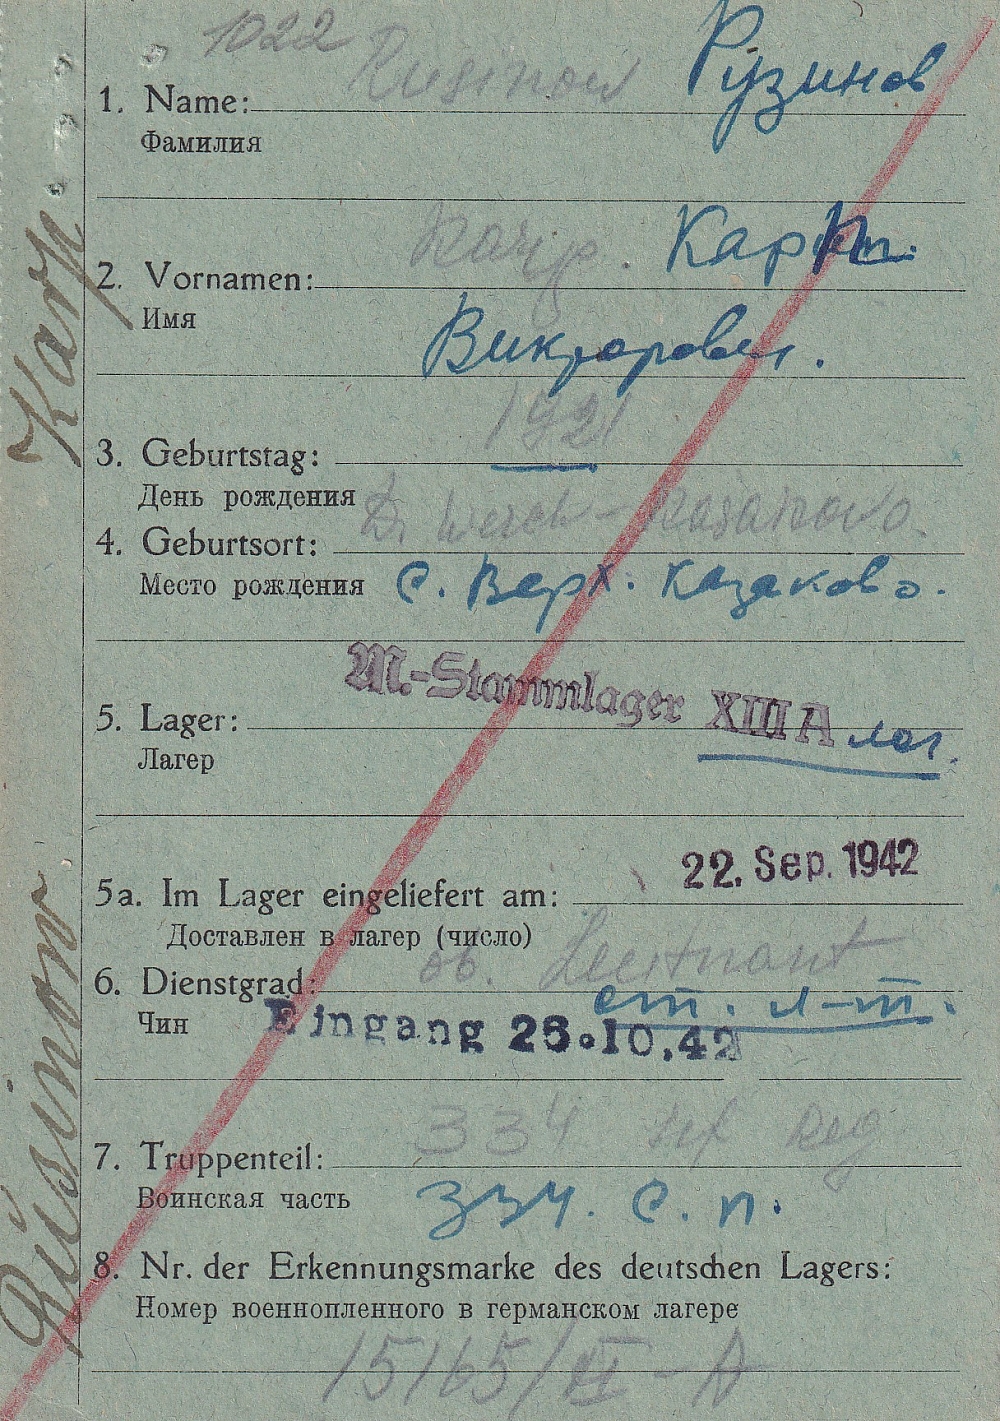 1022
Rusinow Рузинов
1. Name:
Фамилия
Karp. Карп.
2. Vornamen:
Имя
Викторович.
1921
3. Geburtstag:
День рождения
D. Werch-Kasakowo.
4. Geburtsort:
Место рождения С. Верх. Казаково.
M.-Stammlager XIII A лаг.
5. Lager:
Лагерь
22. Sep. 1942
5a. Im Lager eingeliefert am:
Доставлен в лагер (число)
ob. Leutnant
6. Dienstgrad: ст. л-т.
Чин Eingang 26.10.42
334 Reg
7. Truppenteil:
Воинская часть 334. С. п.
8. Nr. der Erkennungsmarke des deutschen Lagers:
Номер военнопленного в германском лагере
15165/XI-A
Rüsinow Karp